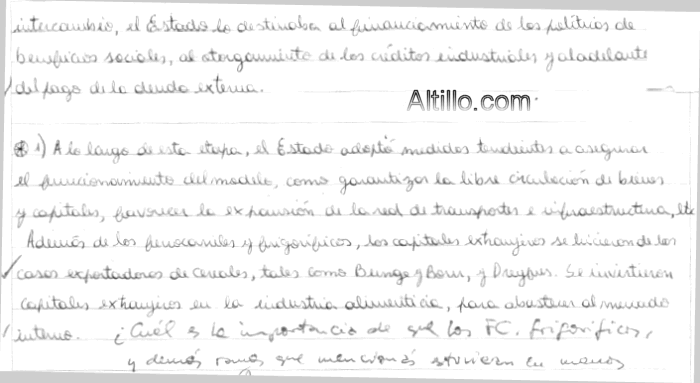 intercambio, el Estado lo destinaba al financiamiento de las políticas de
beneficios sociales, al otorgamiento de los créditos industriales y al adelanto
del pago de la deuda externa.
Altillo.com
1) A lo largo de esta etapa, el Estado adoptó medidas tendientes a asegurar
el funcionamiento del modelo, como garantizar la libre circulación de bienes
y capitales, favorecer la expansión de la red de transportes e infraestructura, etc
Además de los ferrocarriles y frigoríficos, los capitales extranjeros se hicieron de las
casas exportadoras de cereales, tales como Bunge y Born, y Dreyfus. Se invirtieron
capitales extranjeros en la industria alimenticia, para abastecer al mercado
interno. ¿Cuál es la importancia de que los FC, frigoríficos,
y demás ramas que mencionás estuvieran en manos